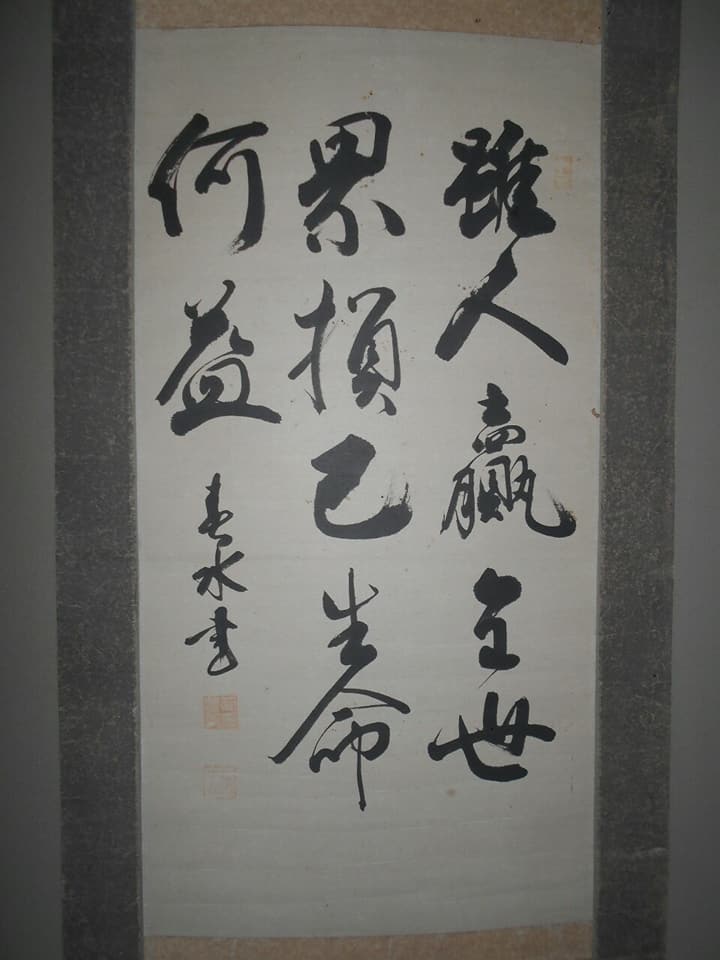 雖人贏全世
界損己生命
何益
春水書